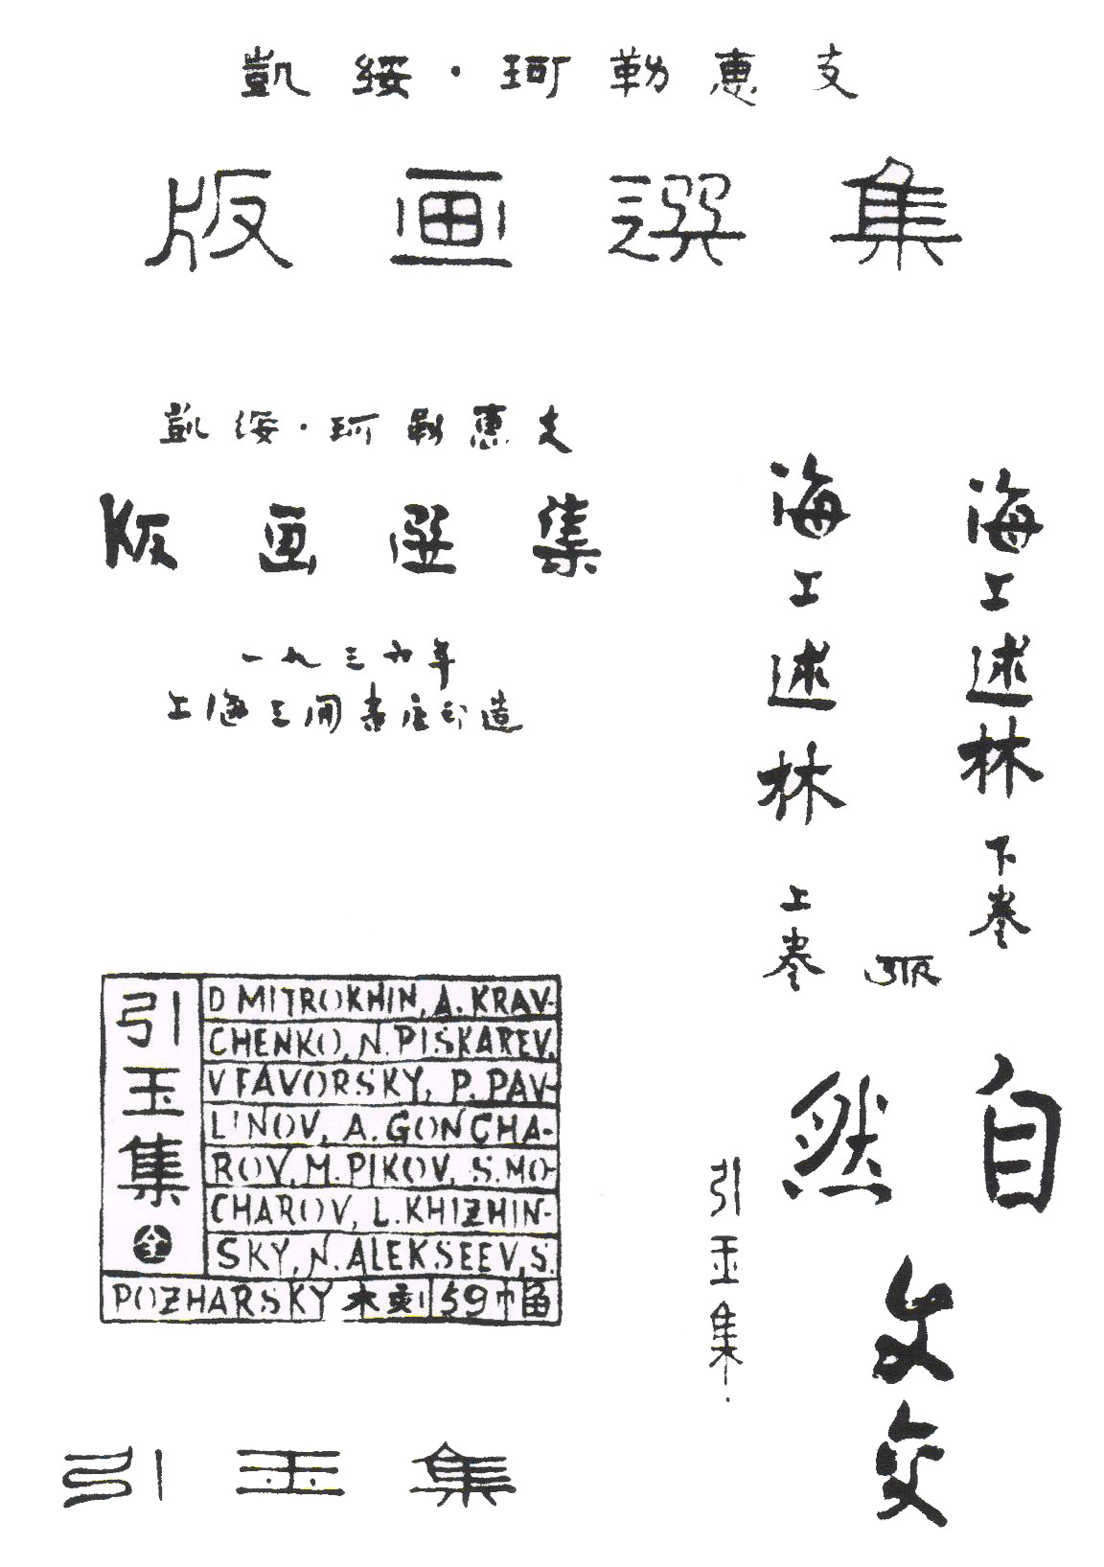 凱綏·珂勒惠支
版画選集
凱綏·珂勒惠支
版画選集
一九三六年
上海三閒書屋印造
海上述林 下卷
海上述林 上卷
STR
引玉集 全
D MITROKHIN, A. KRAV-
CHENKO, N. PISKAREV,
V FAVORSKY, P. PAV-
LINOV, A. GONCHA-
ROV, M. PIKOV, S. MO-
CHAROV, L. KHIZHIN-
SKY, N. ALEKSEEV, S.
POZHARSKY 木刻 59 幅
自然
文交
引玉集
引玉集